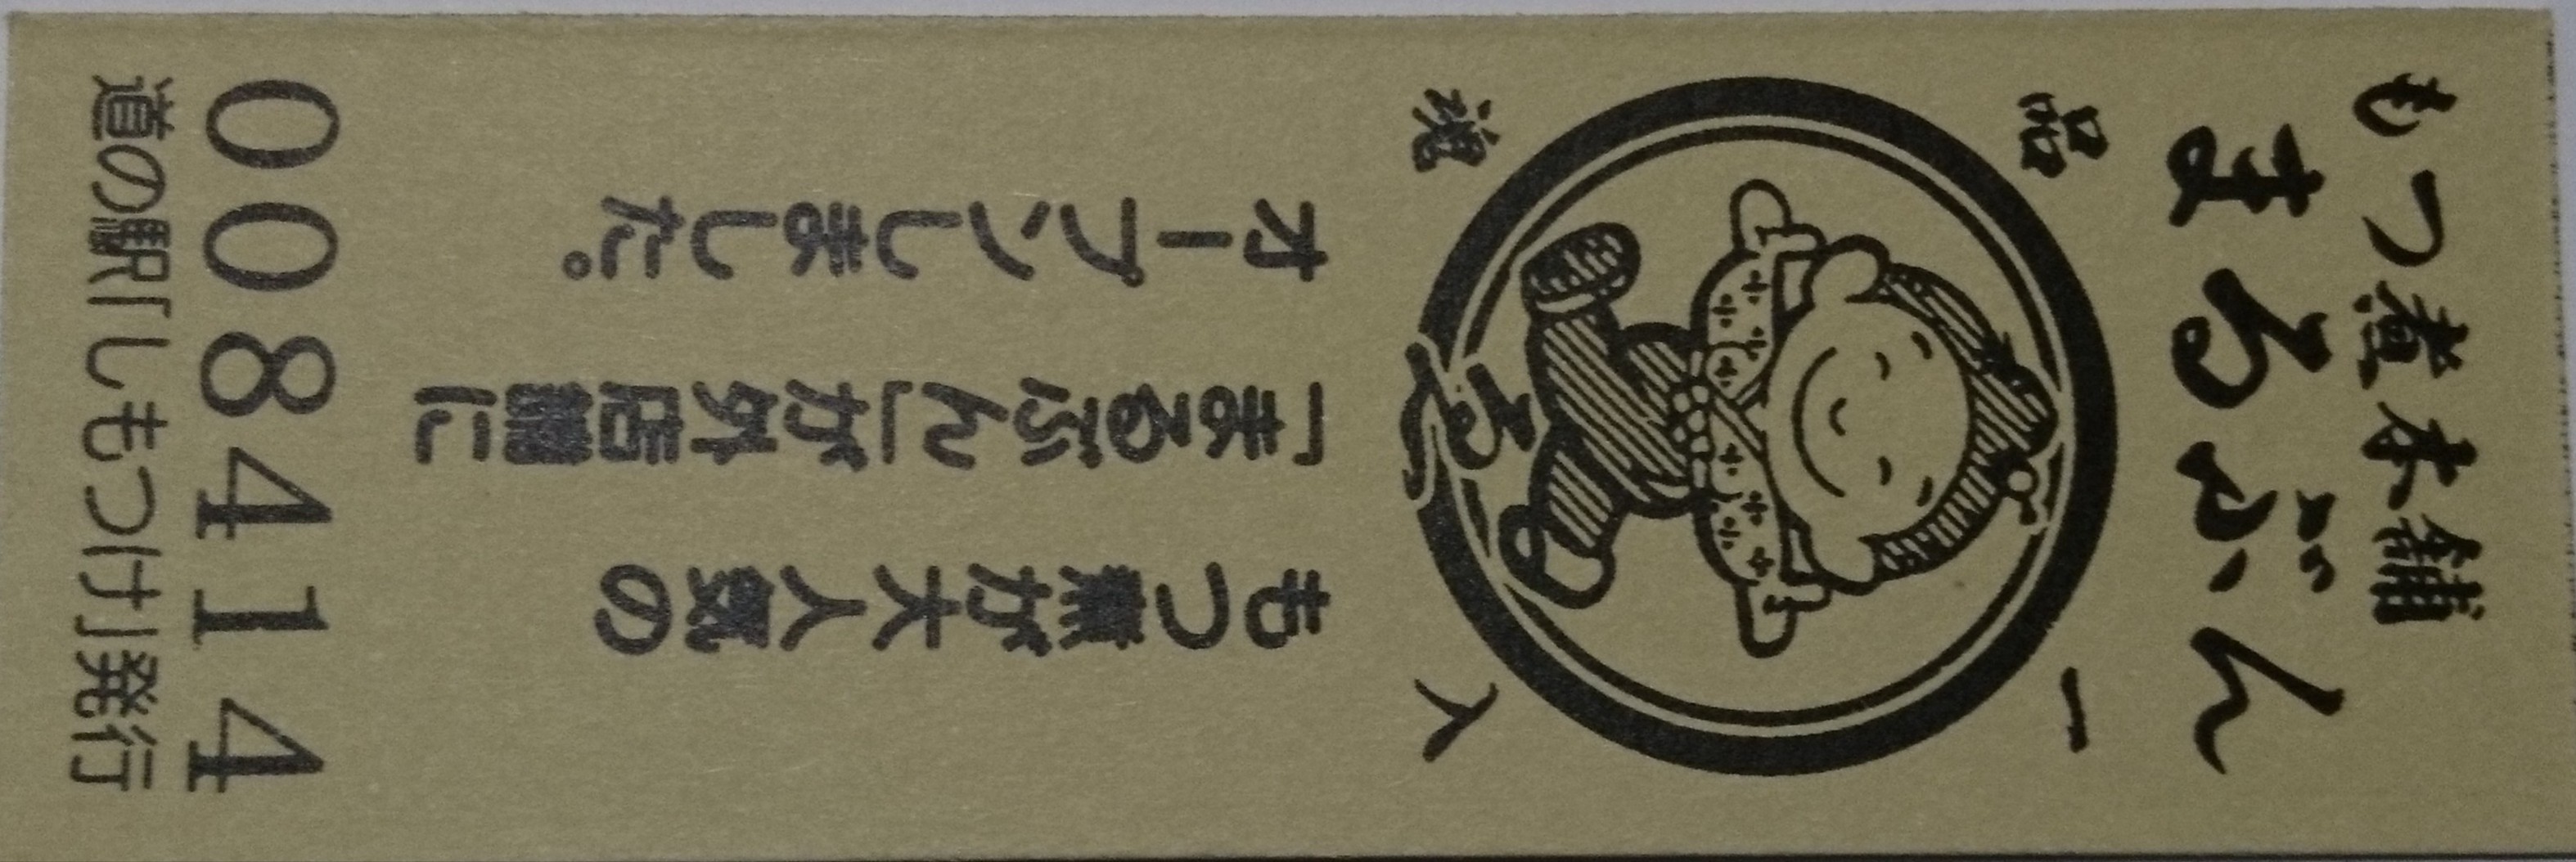 もつ煮本舗
まるぶん
一品
入魂
もつ煮が大人気の
「まるぶん」が外店舗に
オープンしました。
008414
道の駅「しもつけ」発行